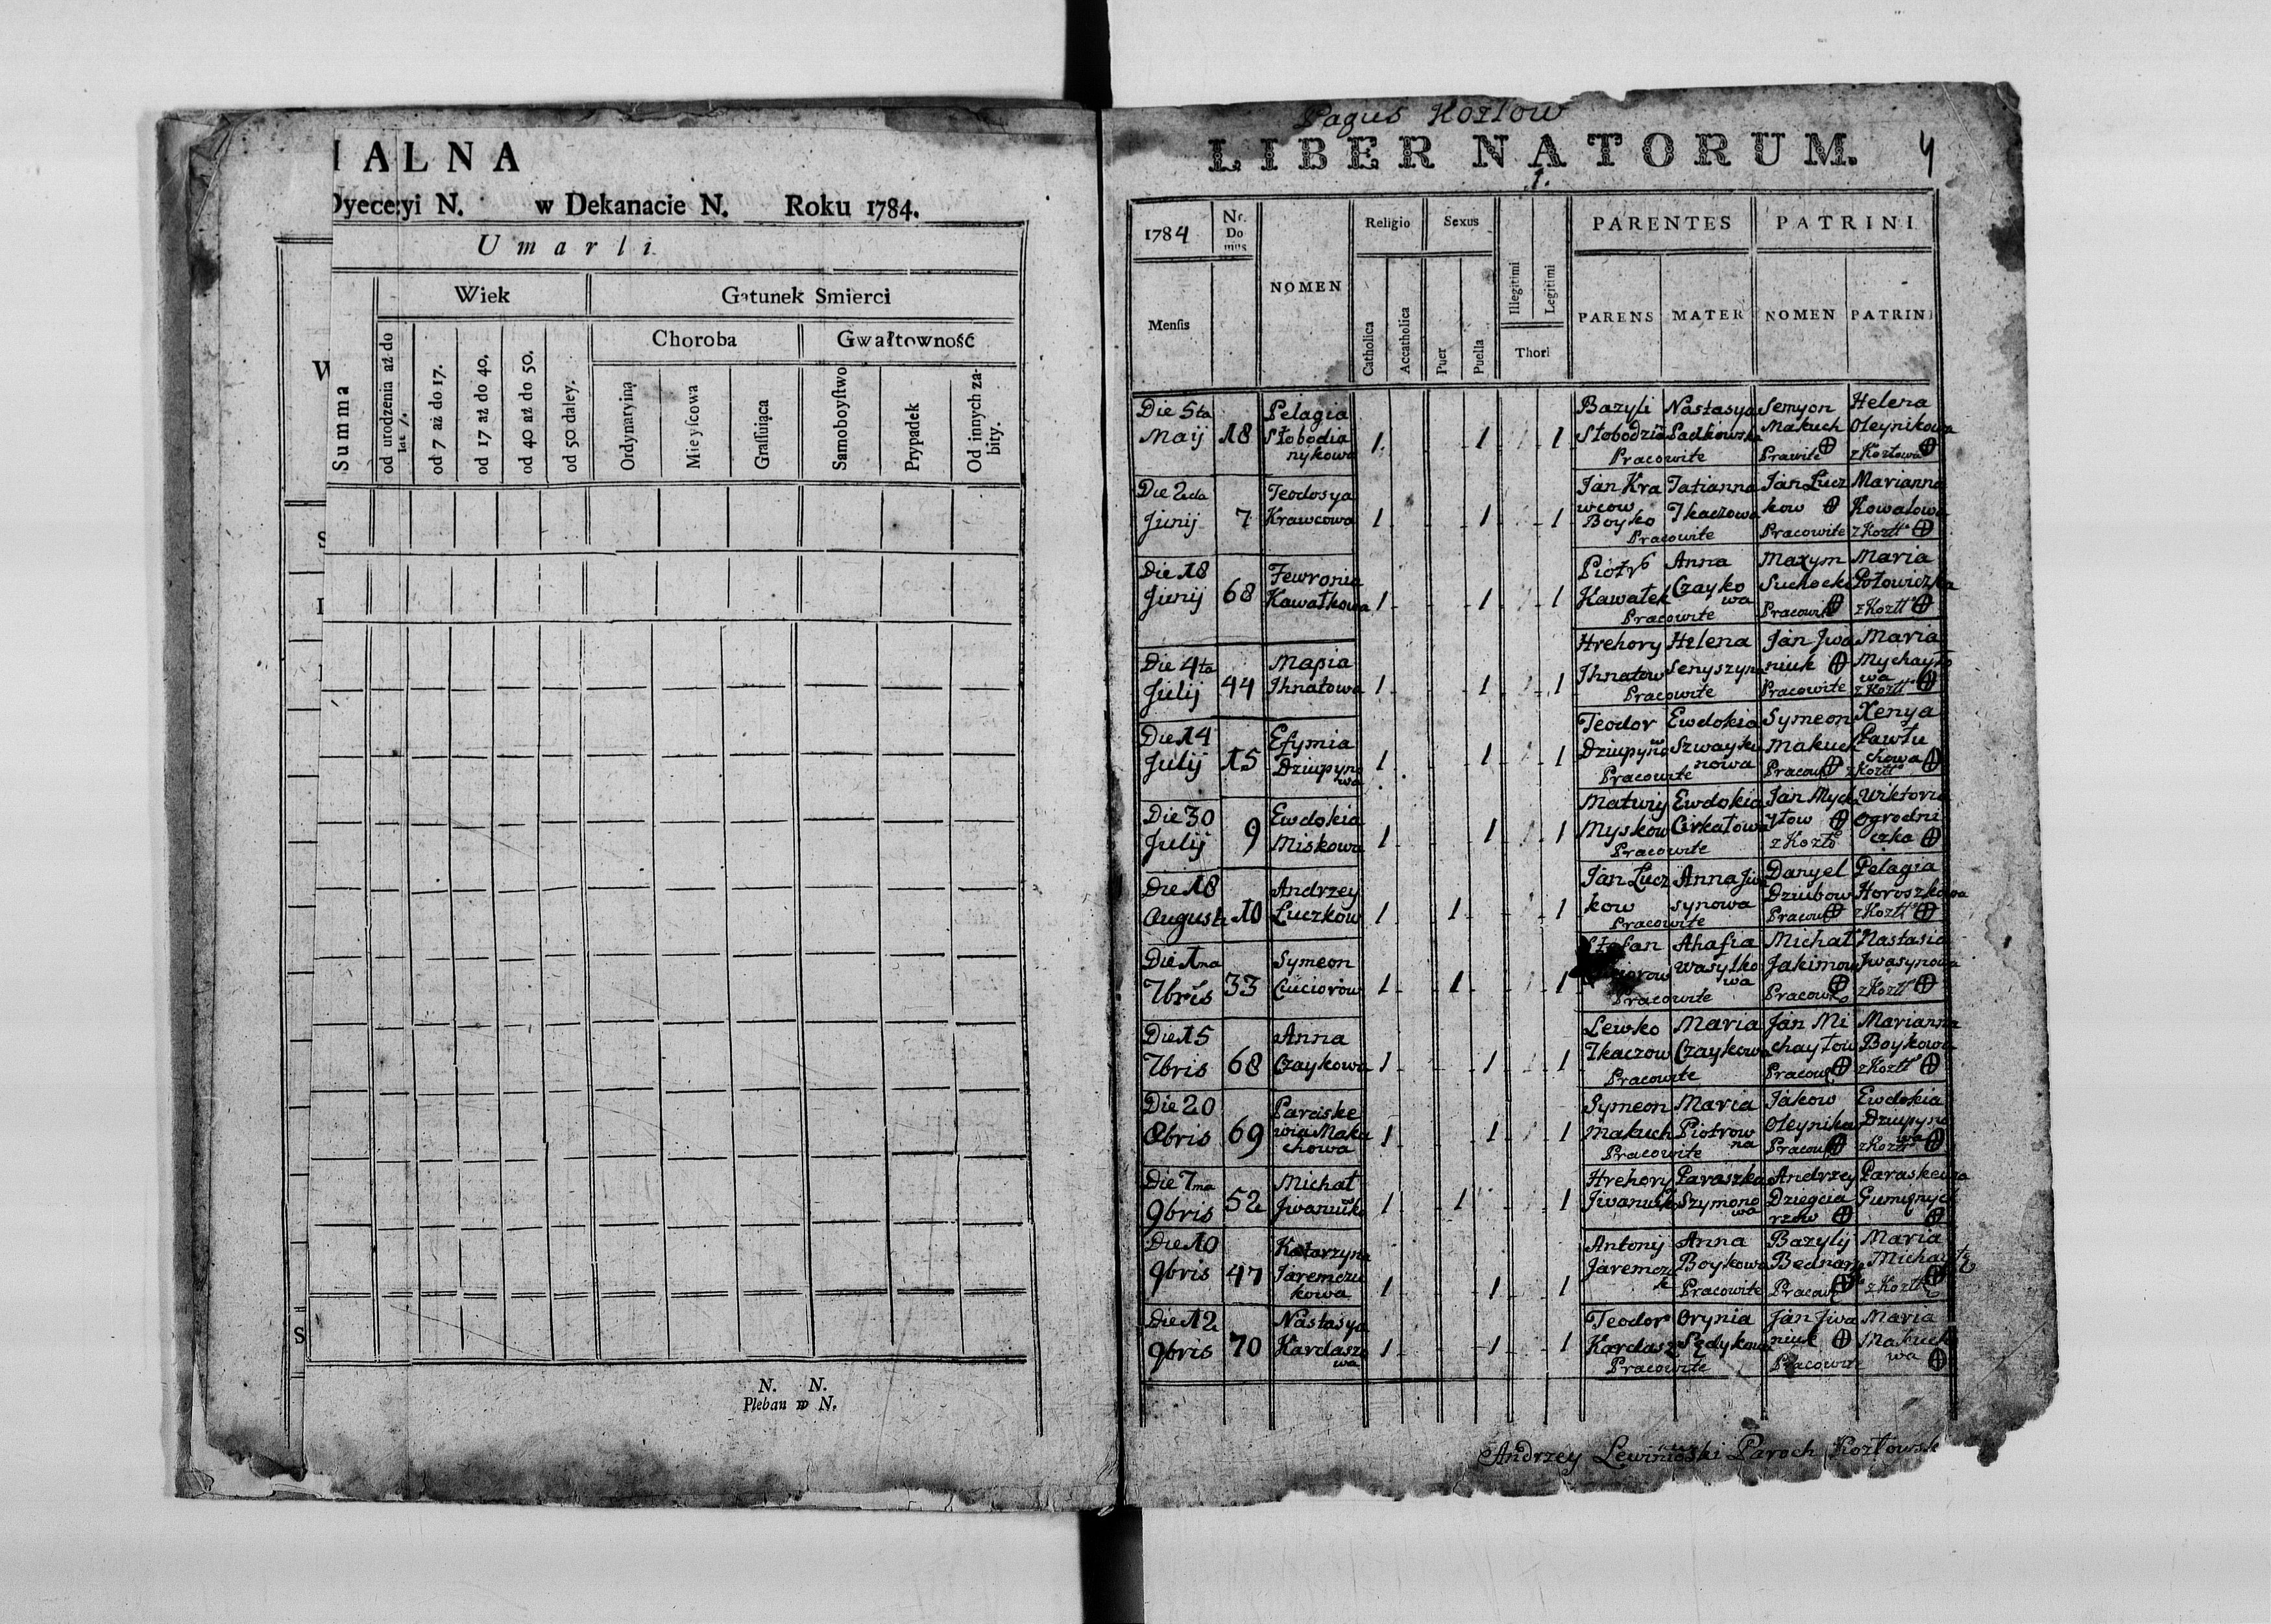 IALNA
Dyecezyi N. w Dekanacie N. Roku 1784.
Umarli.
Wiek
Gatunek Smierci
Choroba
Gwałtowność
Summa
od urodzenia aż do lat 7.
od 7 aż do 17.
od 17 aż do 40.
od 40 aż do 50.
od 50 daley.
Ordynaryina
Mieyscowa
Grassuiąca
Samoboystwo
Prypadek
Od innych zabity.
N. N.
Pleban w N.
Pagus Kozłow
LIBER NATORUM.
4
1.
1784
Nr. Domus
NOMEN
Religio
Sexus
Illegitimi
Legitimi
PARENTES
PATRINI
Mensis
Catholica
Accatholica
Puer
Puella
Thori
PARENS
MATER
NOMEN
PATRINI
Die 5ta Bazyli Nastasya Semyon Helena
Maij 18 Pelagia Słobodianykowa 1 1 1 Makuch Oleynikowa
Pracowite z Kozłowa
Die 2da Teodosya Jan Krawcow Tatianna Jan Łuczkow Marianna
Junij 7 Krawcowa 1 1 1 Boyko Tkaczowa Kowalowa
Pracowite Pracowite z Kozłł
Die 18 Fewronia Piotr Anna Maxym Maria
Junij 68 Kawałkowa 1 1 1 Kawałek Czaykowa Połowiczka
Pracowite z Kozłł
Die 4ta Maria Hrehory Helena Jan Iwaniuk Maria
Julij 44 Ihnatowa 1 1 1 Ihnatow Senyszyna Mychayłowa
Pracowite Pracowite z Kozłł
Die 14 Efymia Teodor Ewdokia Symeon Xenya
Julij 15 Dziupynowa 1 1 1 Makuch Pawłuchowa
Pracowite z Kozłł
Die 30 Ewdokia Matwiy Ewdokia Jan Wiktoria
Julij 9 Miskowa 1 1 1 Myskow Ogrodniczka
Pracowite z Kozło
Die 18 Andrzey Jan Łuczkow Anna Iwasynowa Danyel Pelagia
Augusti 10 Łuczkow 1 1 1 Dziubow Horoszkowa
Pracowite z Kozłł
Die 1ma Symeon Stefan Ahafia Michał Nastasia
7bris 33 Cuciorow 1 1 1 Wasylkowa Jakimow Iwasynowa
Pracowite z Kozłł
Die 15 Anna Lewko Maria Jan Michayłow Marianna
7bris 68 Czaykowa 1 1 1 Tkaczow Czaykowa Boykowa
Pracowite z Kozłł
Die 20 Paraskewia Symeon Maria Jakow Ewdokia
8bris 69 Makuchowa 1 1 1 Makuch Piotrowna Oleynika Dziupynowa
Pracowite z Kozłł
Die 7ma Michał Hrehory Paraszka Andrzey Paraskewia
9bris 52 1 1 1 Szymonowa Dziegciarzow
Die 10 Katarzyna Antonij Anna Bazylij Maria
9bris 47 Jaremczukowa 1 1 1 Jaremczuk Boykowa Bednarz
Pracowite z Kozłł
Die 12 Nastasya Teodor Orynia Jan Iwaniuk Maria
9bris 70 Kardaszowa 1 1 1 Kardasz Sędykowa Makuchowa
Pracowite Pracowite
Andrzey Lewiniński Paroch Kozłowsk